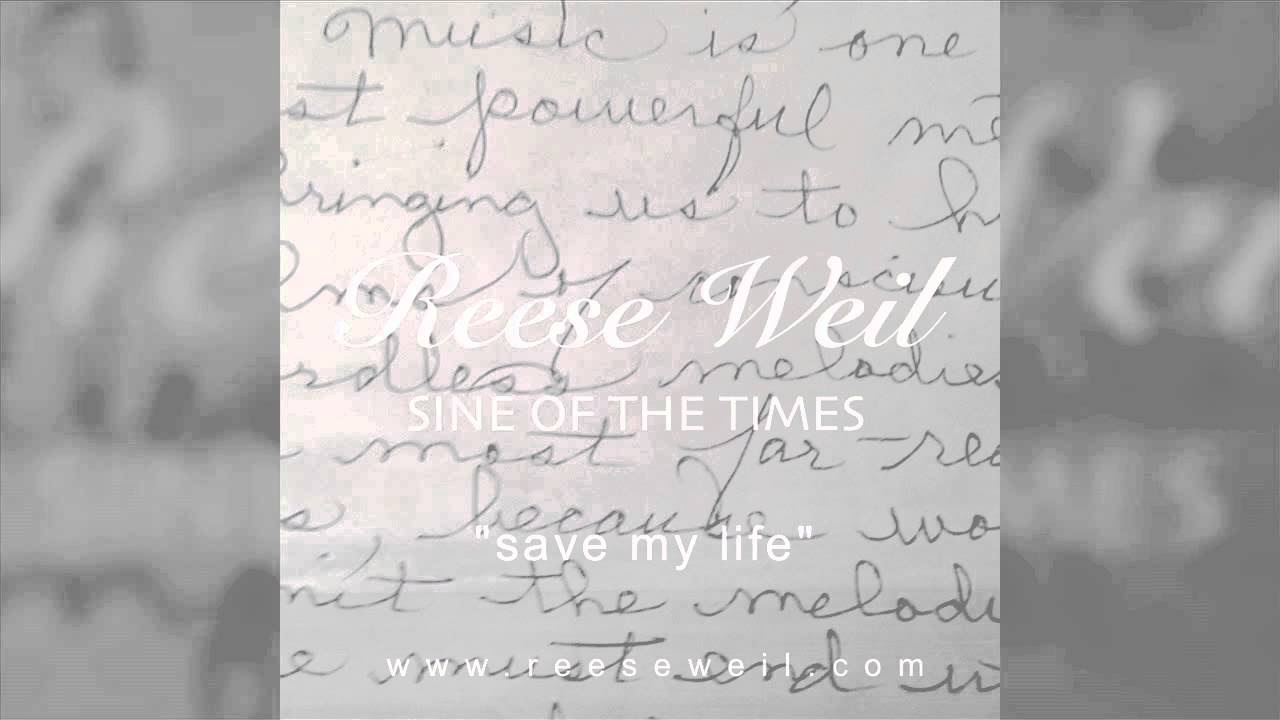 Music is one
st powerful me
bringing us to h
lms of consciou
Reese Weil
rdless melodies
SINE OF THE TIMES
most far-rea
s, because wo
"save my life"
mit the melodi
e must end w
www.reeseweil.com